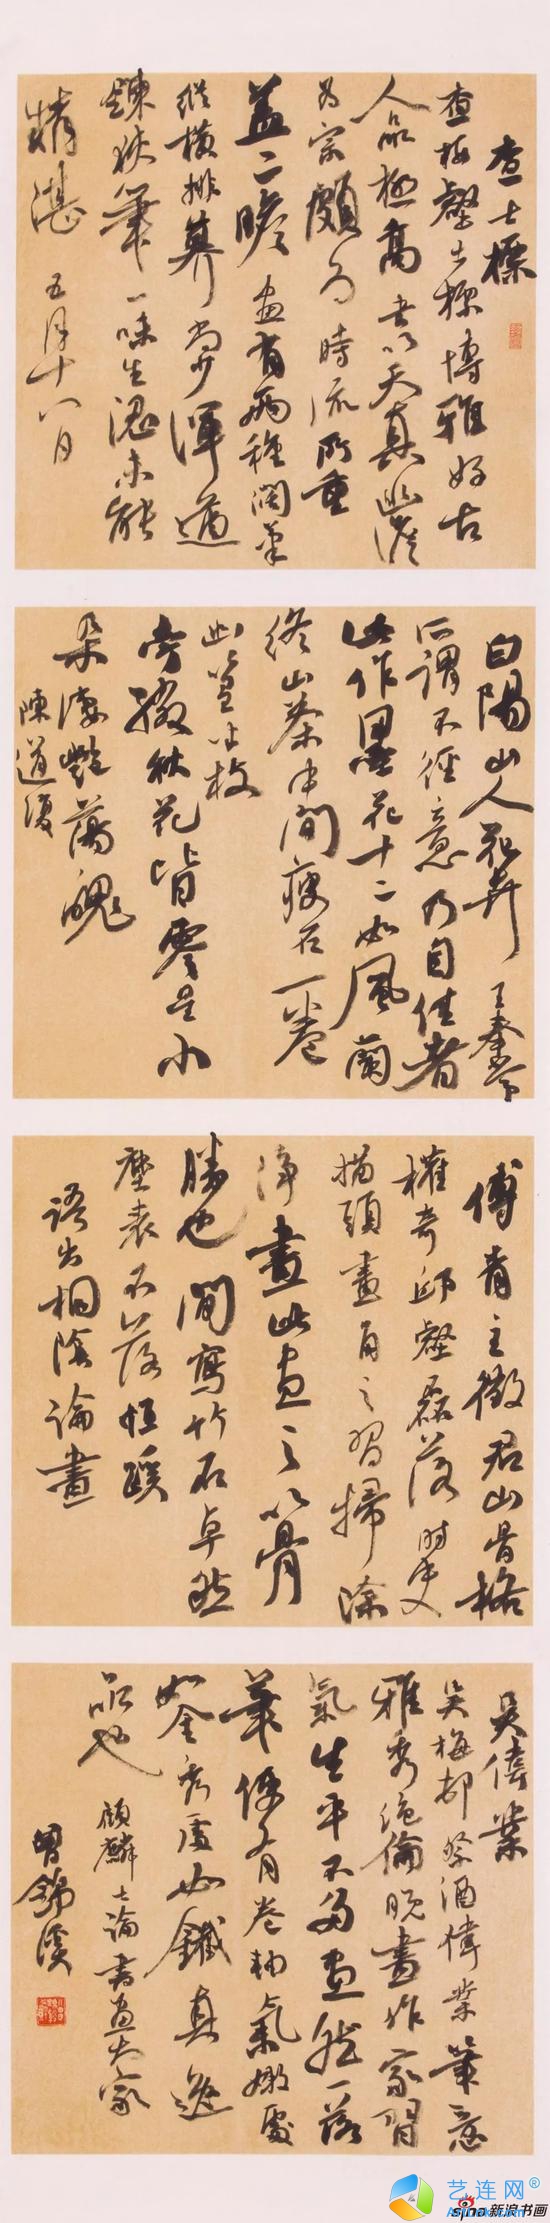 查士標
查梅壑士標博雅好古
人品極高書以天真幽澹
為宗頗為時流所重
蓋二瞻畫有兩種闊筆
縱橫排奡尚少渾遒
鍊狹筆一味生澀未能
精湛 五月十八日
白陽山人花卉 王秦
所謂不經意乃自佳者
此作墨花十二如風蘭
終山茶中間瘦石一卷
此 枝
旁綴秋花皆零星小
朵淒艷蕩魄
陳道復
傅青主徵君山骨格
權奇邱壑磊落時史
描頭畫角之習掃除
淨盡此畫之以骨
勝也閒寫竹石卓然
塵表不落恒蹊
語出桐陰論畫
吳偉業
吳梅邨祭酒偉業筆意
雅秀絕倫脫盡作家習
氣生平不多畫然一落
筆便有卷軸氣嫩處
如金秀處如鐵真逸
品也 顧麟士論書畫大家
曾錦溪
艺连网
Artlink.com
sina新浪书画